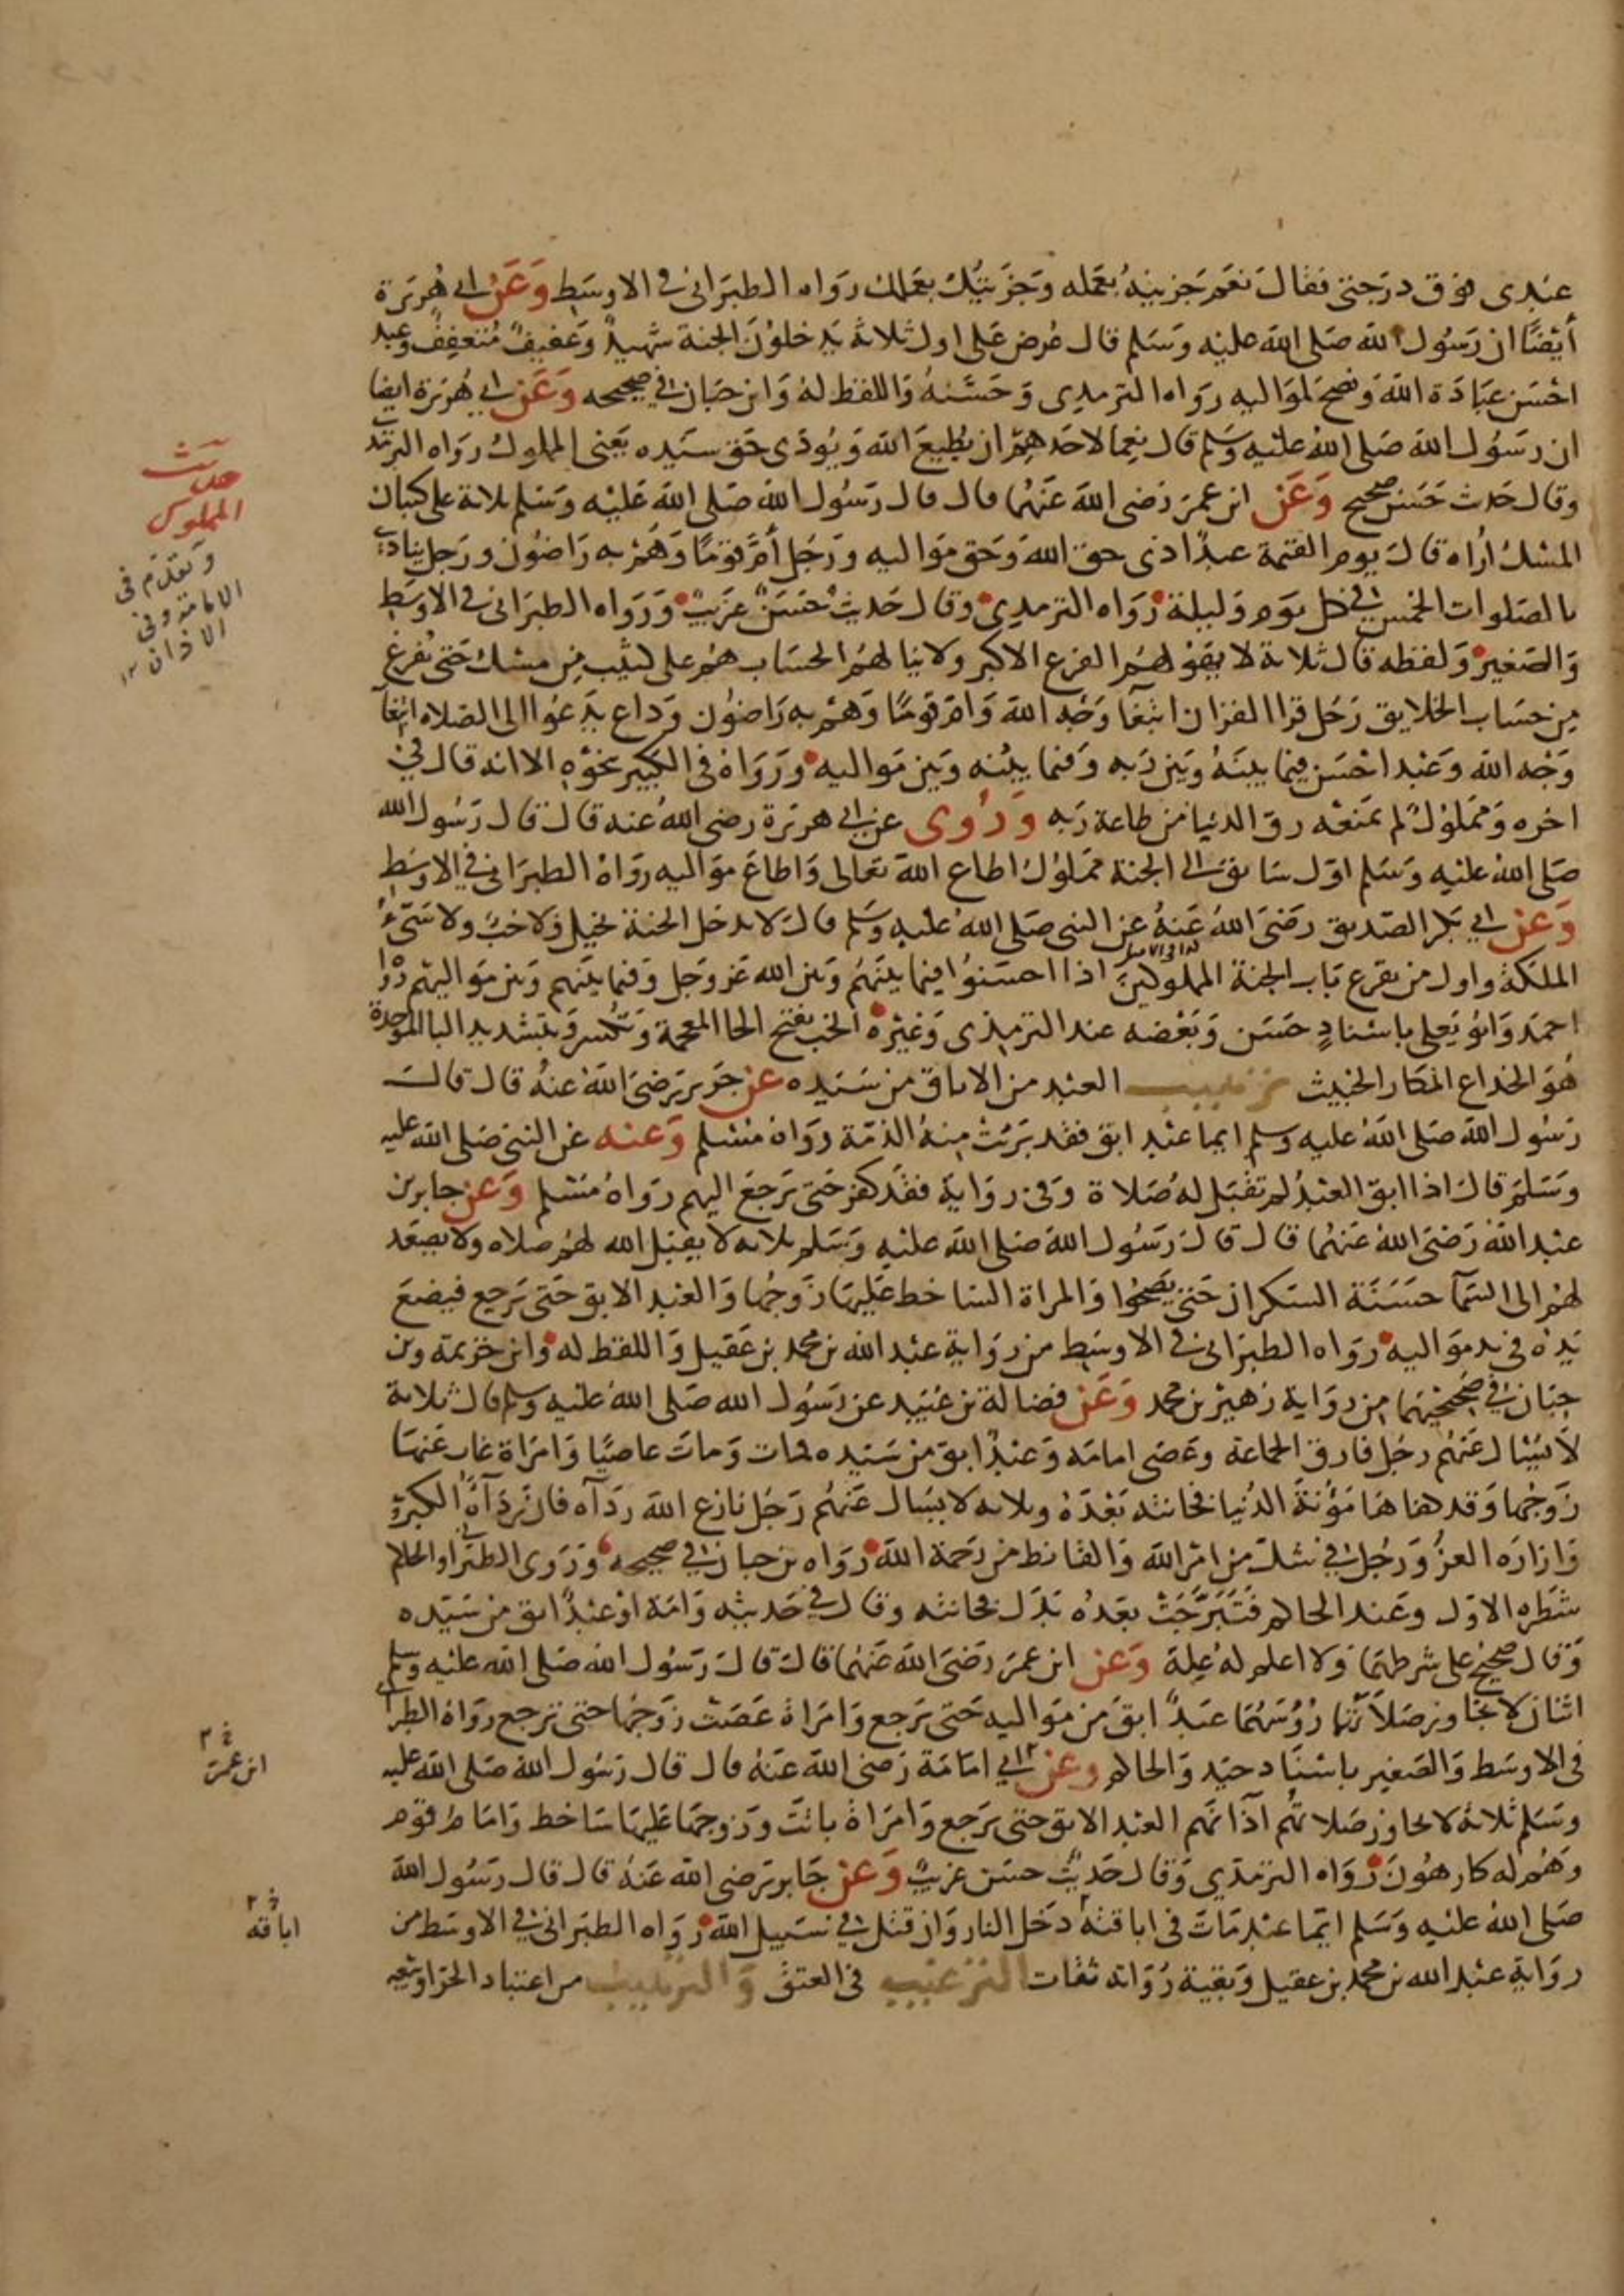 عبدى فوق درجتى فقال نعم جزيته بعمله وجزيتك بعملك رواه الطبرانى فى الاوسط وعن ابى هريرة
أيضًا ان رسول الله صلى الله عليه وسلم قال عرض على اول ثلاثة يدخلون الجنة شهيد وعفيف متعفف وعبد
احسن عبادة الله ونصح لمواليه رواه الترمدى وحسنه واللفظ له وابن حبان فى صحيحه وعن ابى هريرة ايضا
ان رسول الله صلى الله عليه وسلم قال نعما لاحدهم ان يطيع الله ويودى حق سيده يعنى المملوك رواه الترمد
وقال حدث حسن صحيح وعن ابن عمر رضى الله عنهما قال قال رسول الله صلى الله عليه وسلم ثلاثة على كثبان
المسك أراه قال يوم القيمة عبد ادى حق الله وحق مواليه ورجل أم قوما وهم به راضون ورجل ينادى
بالصلوات الخمس فى كل يوم وليلة رواه الترمدى وقال حديث حسن غريب ورواه الطبرانى فى الاوسط
والصغير ولفظه قال ثلاثة لا يهولهم الفزع الاكبر ولا ينالهم الحساب هم على كثيب من مسك حتى يفرغ
من حساب الخلايق رجل قرا القران ابتغا وجه الله وام قوما وهم به راضون وداع يدعوا الى الصلاه ابتغآ
وجه الله وعبد احسن فيما بينه وبين ربه وفيما بينه وبين مواليه ورواه فى الكبير بنحوه الا انه قال فى
اخره ومملوك لم يمنعه رق الدنيا من طاعة ربه وروى عن ابى هريرة رضى الله عنه قال قال رسول الله
صلى الله عليه وسلم اول سابق الى الجنة مملوك اطاع الله تعالى واطاع مواليه رواه الطبرانى فى الاوسط
وعن ابى بكر الصديق رضى الله عنه عن النبى صلى الله عليه وسلم قال لا يدخل الجنة بخيل ولا خب ولا سىء
الملكة واول من يقرع باب الجنة المملوكين اذا احسنوا فيما بينهم وبين الله عز وجل وفيما بينهم وبين مواليهم روا
احمد وابو يعلى باسناد حسن وبعضه عند الترمذى وغيره الخب بفتح الخا المعجمة وتكسر وبتشديد البا الموحدة
هو الخداع المكار الخبيث ترهيب العبد من الاباق من سيده عن جرير رضى الله عنه قال قال
رسول الله صلى الله عليه وسلم ايما عبد ابق فقد برئت منه الذمة رواه مسلم وعنه عن النبى صلى الله عليه
وسلم قال اذا ابق العبد لم تقبل له صلاة وفى رواية فقد كفر حتى يرجع اليهم رواه مسلم وعن جابر بن
عبد الله رضى الله عنهما قال قال رسول الله صلى الله عليه وسلم ثلاثه لا يقبل الله لهم صلاه ولا يصعد
لهم الى السمآ حسنة السكران حتى يصحوا والمراة الساخط عليها زوجها والعبد الابق حتى يرجع فيضع
يده فى يد مواليه رواه الطبرانى فى الاوسط من رواية عبد الله بن محمد بن عقيل واللفظ له وابن خزيمة وبن
حبان فى صحيحيهما من رواية زهير بن محمد وعن فضالة بن عبيد عن رسول الله صلى الله عليه وسلم قال ثلاثة
لا يسال عنهم رجل فارق الجماعة وعصى امامه وعبد ابق من سيده فمات ومات عاصيا وامراة غاب عنها
زوجها وقد كفاها مؤنة الدنيا فخانته بعده وثلاثه لا يسال عنهم رجل نازع الله ردآه فان ردآه الكبر
وازاره العز ورجل فى شك من امر الله والقانط من رحمة الله رواه بن حبان فى صحيحه وروى الطبرانى والحاكم
شطره الاول وعند الحاكم فتبرجت بعده بدل فخانته وقال فى حديثه وامة او عبد ابق من سيده
وقال صحيح على شرطهما ولا اعلم له علة وعن ابن عمر رضى الله عنهما قال قال رسول الله صلى الله عليه وسلم
اثنان لا تجاوز صلاتهما رؤسهما عبد ابق من مواليه حتى يرجع وامراة عصت زوجها حتى ترجع رواه الطبرا
فى الاوسط والصغير باسناد جيد والحاكم وعن ابى امامة رضى الله عنه قال قال رسول الله صلى الله عليه
وسلم ثلاثة لا تجاوز صلاتهم آذانهم العبد الابق حتى يرجع وامراة باتت وزوجها عليها ساخط وامام قوم
وهم له كارهون رواه الترمذي وقال حديث حسن غريب وعن جابر رضى الله عنه قال قال رسول الله
صلى الله عليه وسلم ايما عبد مات فى اباقته دخل النار وان قتل فى سبيل الله رواه الطبرانى فى الاوسط من
رواية عبد الله بن محمد بن عقيل وبقية رواته ثقات الترغيب فى العتق والترهيب من اعتباد الحر او بيعه
حديث
المملوك
وتقدم فى
الامامة وفى
الاذان ١٢
خ ٢
ابن عمر
خ ٢
اباقه